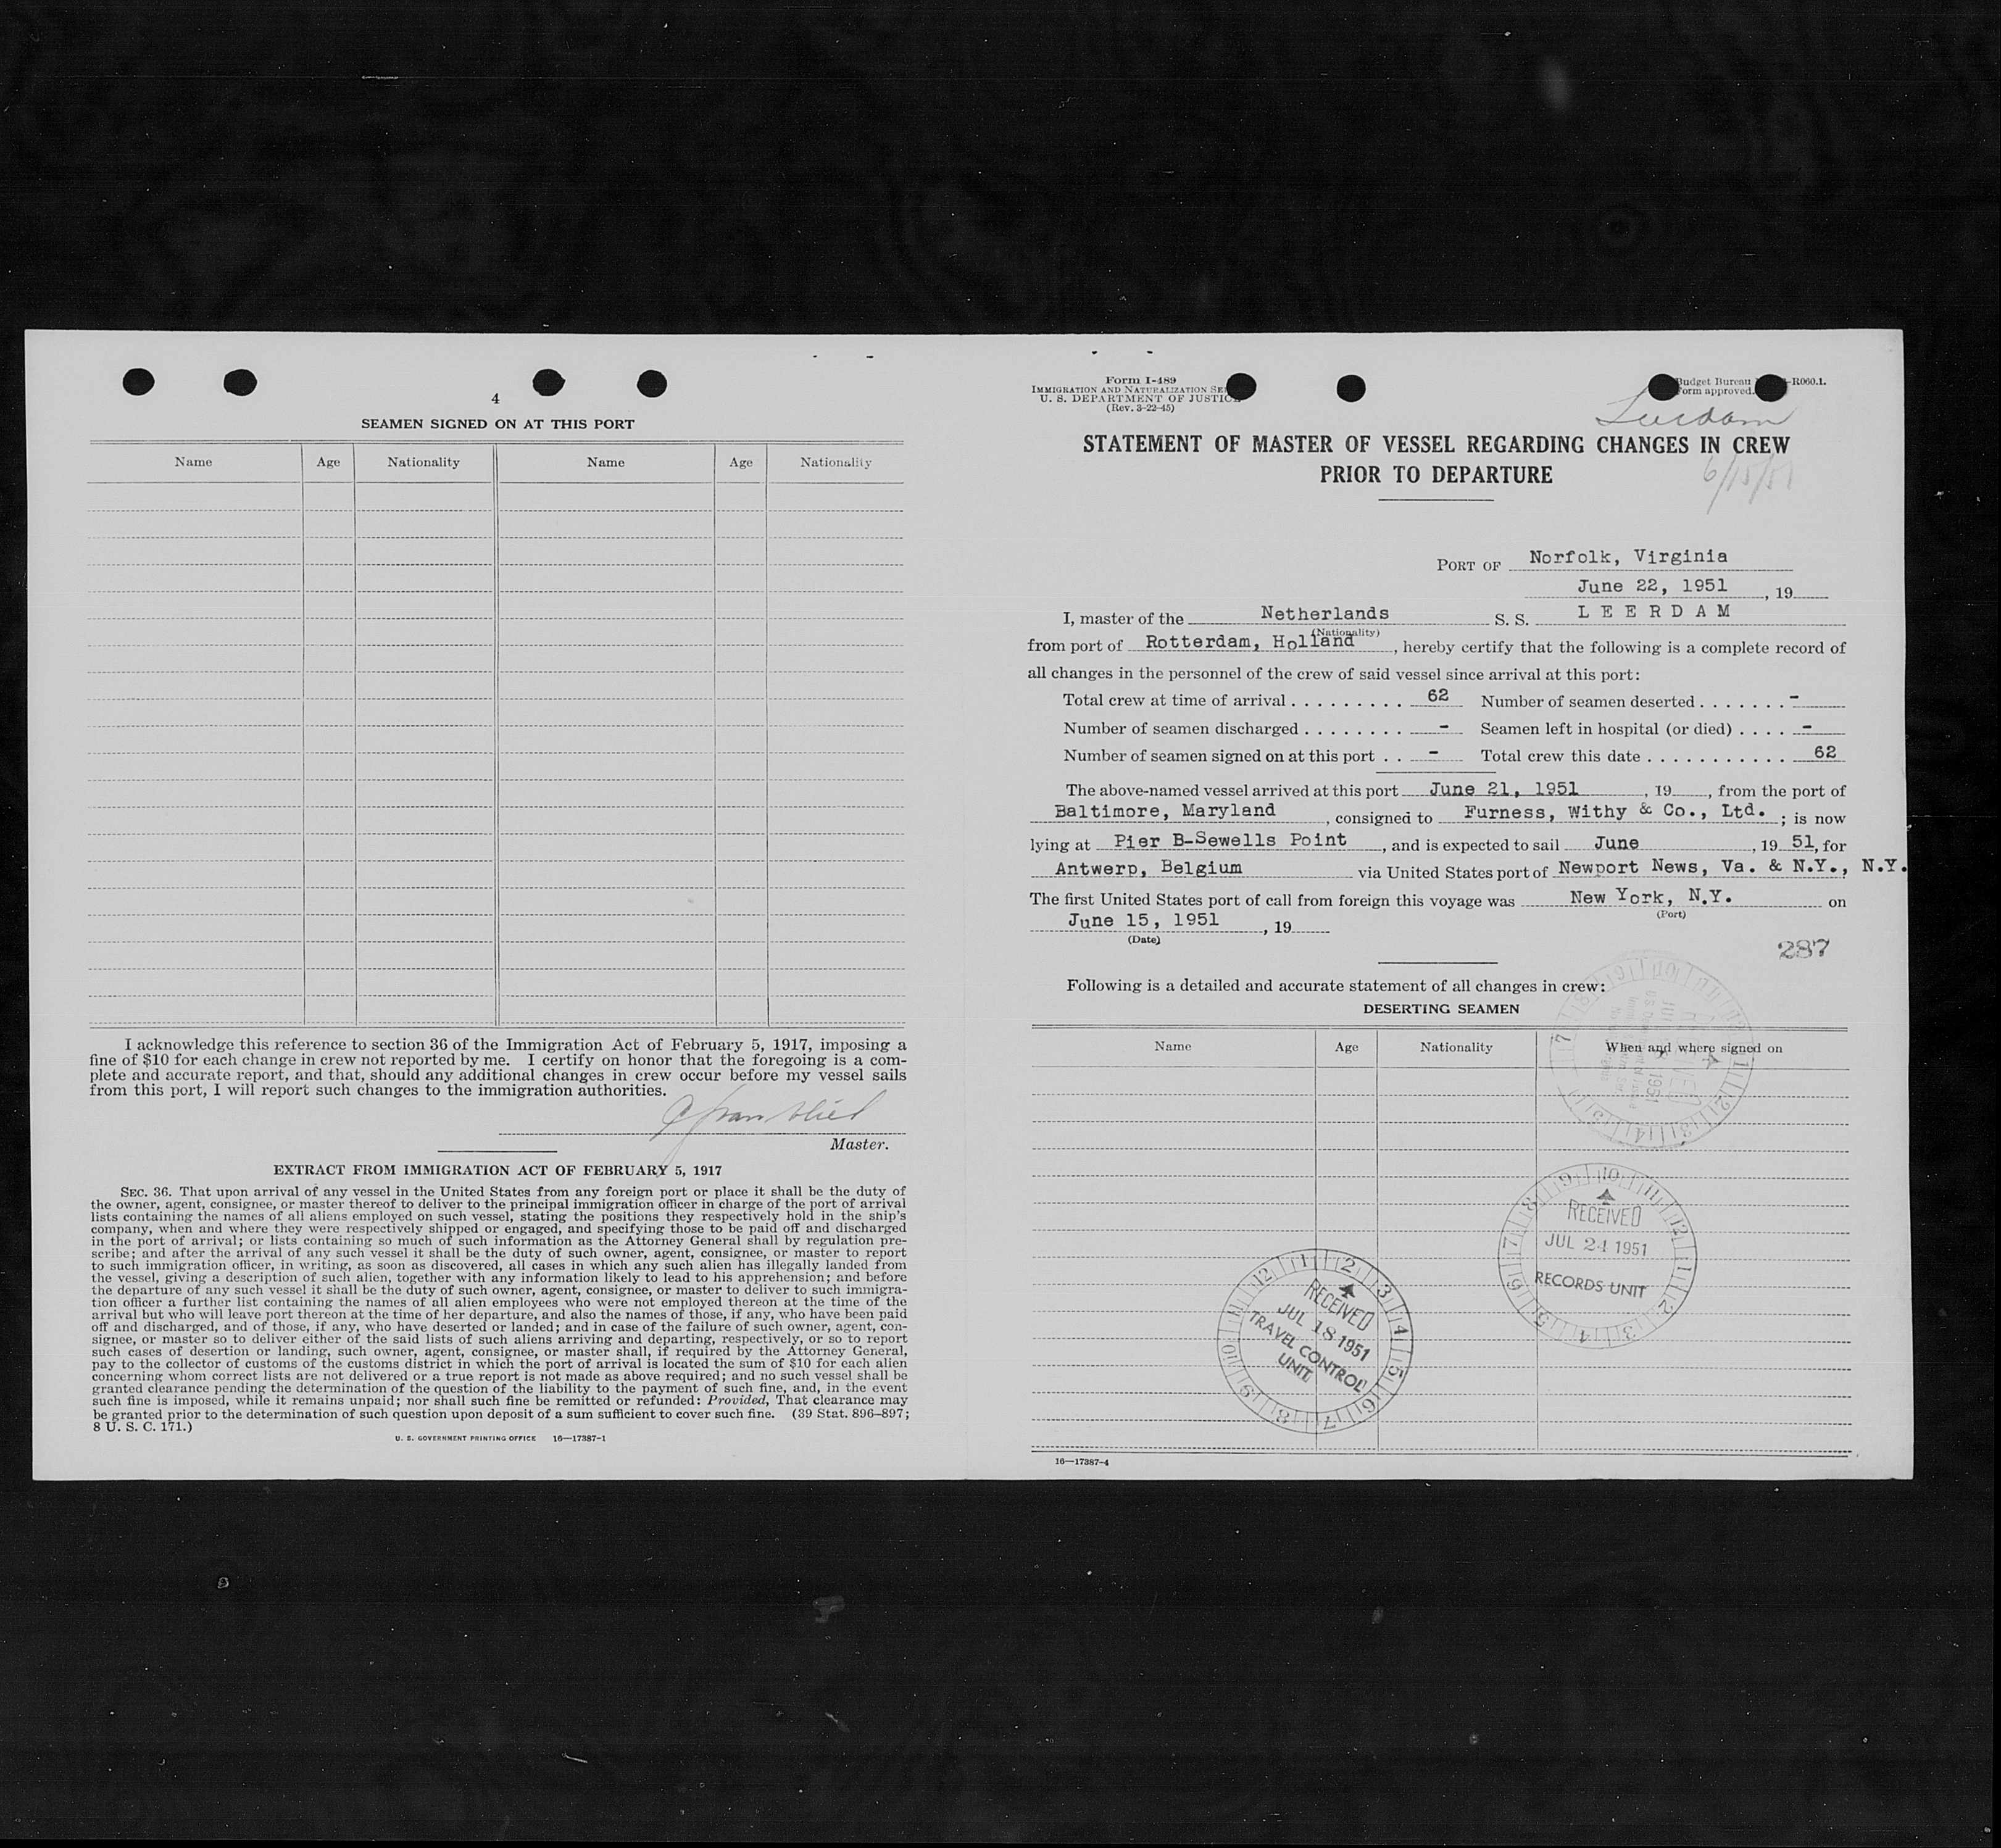 4
SEAMEN SIGNED ON AT THIS PORT
Name Age Nationality Name Age Nationality
I acknowledge this reference to section 36 of the Immigration Act of February 5, 1917, imposing a
fine of $10 for each change in crew not reported by me. I certify on honor that the foregoing is a com-
plete and accurate report, and that, should any additional changes in crew occur before my vessel sails
from this port, I will report such changes to the immigration authorities.
Master.
EXTRACT FROM IMMIGRATION ACT OF FEBRUARY 5, 1917
SEC. 36. That upon arrival of any vessel in the United States from any foreign port or place it shall be the duty of
the owner, agent, consignee, or master thereof to deliver to the principal immigration officer in charge of the port of arrival
lists containing the names of all aliens employed on such vessel, stating the positions they respectively hold in the ship's
company, when and where they were respectively shipped or engaged, and specifying those to be paid off and discharged
in the port of arrival; or lists containing so much of such information as the Attorney General shall by regulation pre-
scribe; and after the arrival of any such vessel it shall be the duty of such owner, agent, consignee, or master to report
to such immigration officer, in writing, as soon as discovered, all cases in which any such alien has illegally landed from
the vessel, giving a description of such alien, together with any information likely to lead to his apprehension; and before
the departure of any such vessel it shall be the duty of such owner, agent, consignee, or master to deliver to such immigra-
tion officer a further list containing the names of all alien employees who were not employed thereon at the time of the
arrival but who will leave port thereon at the time of her departure, and also the names of those, if any, who have been paid
off and discharged, and of those, if any, who have deserted or landed; and in case of the failure of such owner, agent, con-
signee, or master so to deliver either of the said lists of such aliens arriving and departing, respectively, or so to report
such cases of desertion or landing, such owner, agent, consignee, or master shall, if required by the Attorney General,
pay to the collector of customs of the customs district in which the port of arrival is located the sum of $10 for each alien
concerning whom correct lists are not delivered or a true report is not made as above required; and no such vessel shall be
granted clearance pending the determination of the question of the liability to the payment of such fine, and, in the event
such fine is imposed, while it remains unpaid; nor shall such fine be remitted or refunded: Provided, That clearance may
be granted prior to the determination of such question upon deposit of a sum sufficient to cover such fine. (39 Stat. 896–897;
8 U. S. C. 171.)
U. S. GOVERNMENT PRINTING OFFICE 16—17387-1
Form I-489
IMMIGRATION AND NATURALIZATION
U. S. DEPARTMENT OF JUSTICE
(Rev. 3-22-45)
Budget Bureau -R060.1.
Form approved.
Leerdam
STATEMENT OF MASTER OF VESSEL REGARDING CHANGES IN CREW
PRIOR TO DEPARTURE
6/15/51
PORT OF Norfolk, Virginia
June 22, 1951 , 19
I, master of the Netherlands S. S. L E E R D A M
(Nationality)
from port of Rotterdam, Holland , hereby certify that the following is a complete record of
all changes in the personnel of the crew of said vessel since arrival at this port:
Total crew at time of arrival . . . . . . . . . 62 Number of seamen deserted . . . . . . . -
Number of seamen discharged . . . . . . . . - Seamen left in hospital (or died) . . . . -
Number of seamen signed on at this port . . - Total crew this date . . . . . . . . . . . 62
The above-named vessel arrived at this port June 21, 1951 , 19 , from the port of
Baltimore, Maryland , consigned to Furness, Withy & Co., Ltd. ; is now
lying at Pier B-Sewells Point , and is expected to sail June , 19 51, for
Antwerp, Belgium via United States port of Newport News, Va. & N.Y., N.Y.
The first United States port of call from foreign this voyage was New York, N.Y. on
(Port)
June 15, 1951 , 19
(Date)
287
Following is a detailed and accurate statement of all changes in crew:
DESERTING SEAMEN
Name Age Nationality When and where signed on
RECEIVED
JUL 24 1951
RECORDS UNIT
RECEIVED
JUL 18 1951
TRAVEL CONTROL
UNIT
16—17387-4